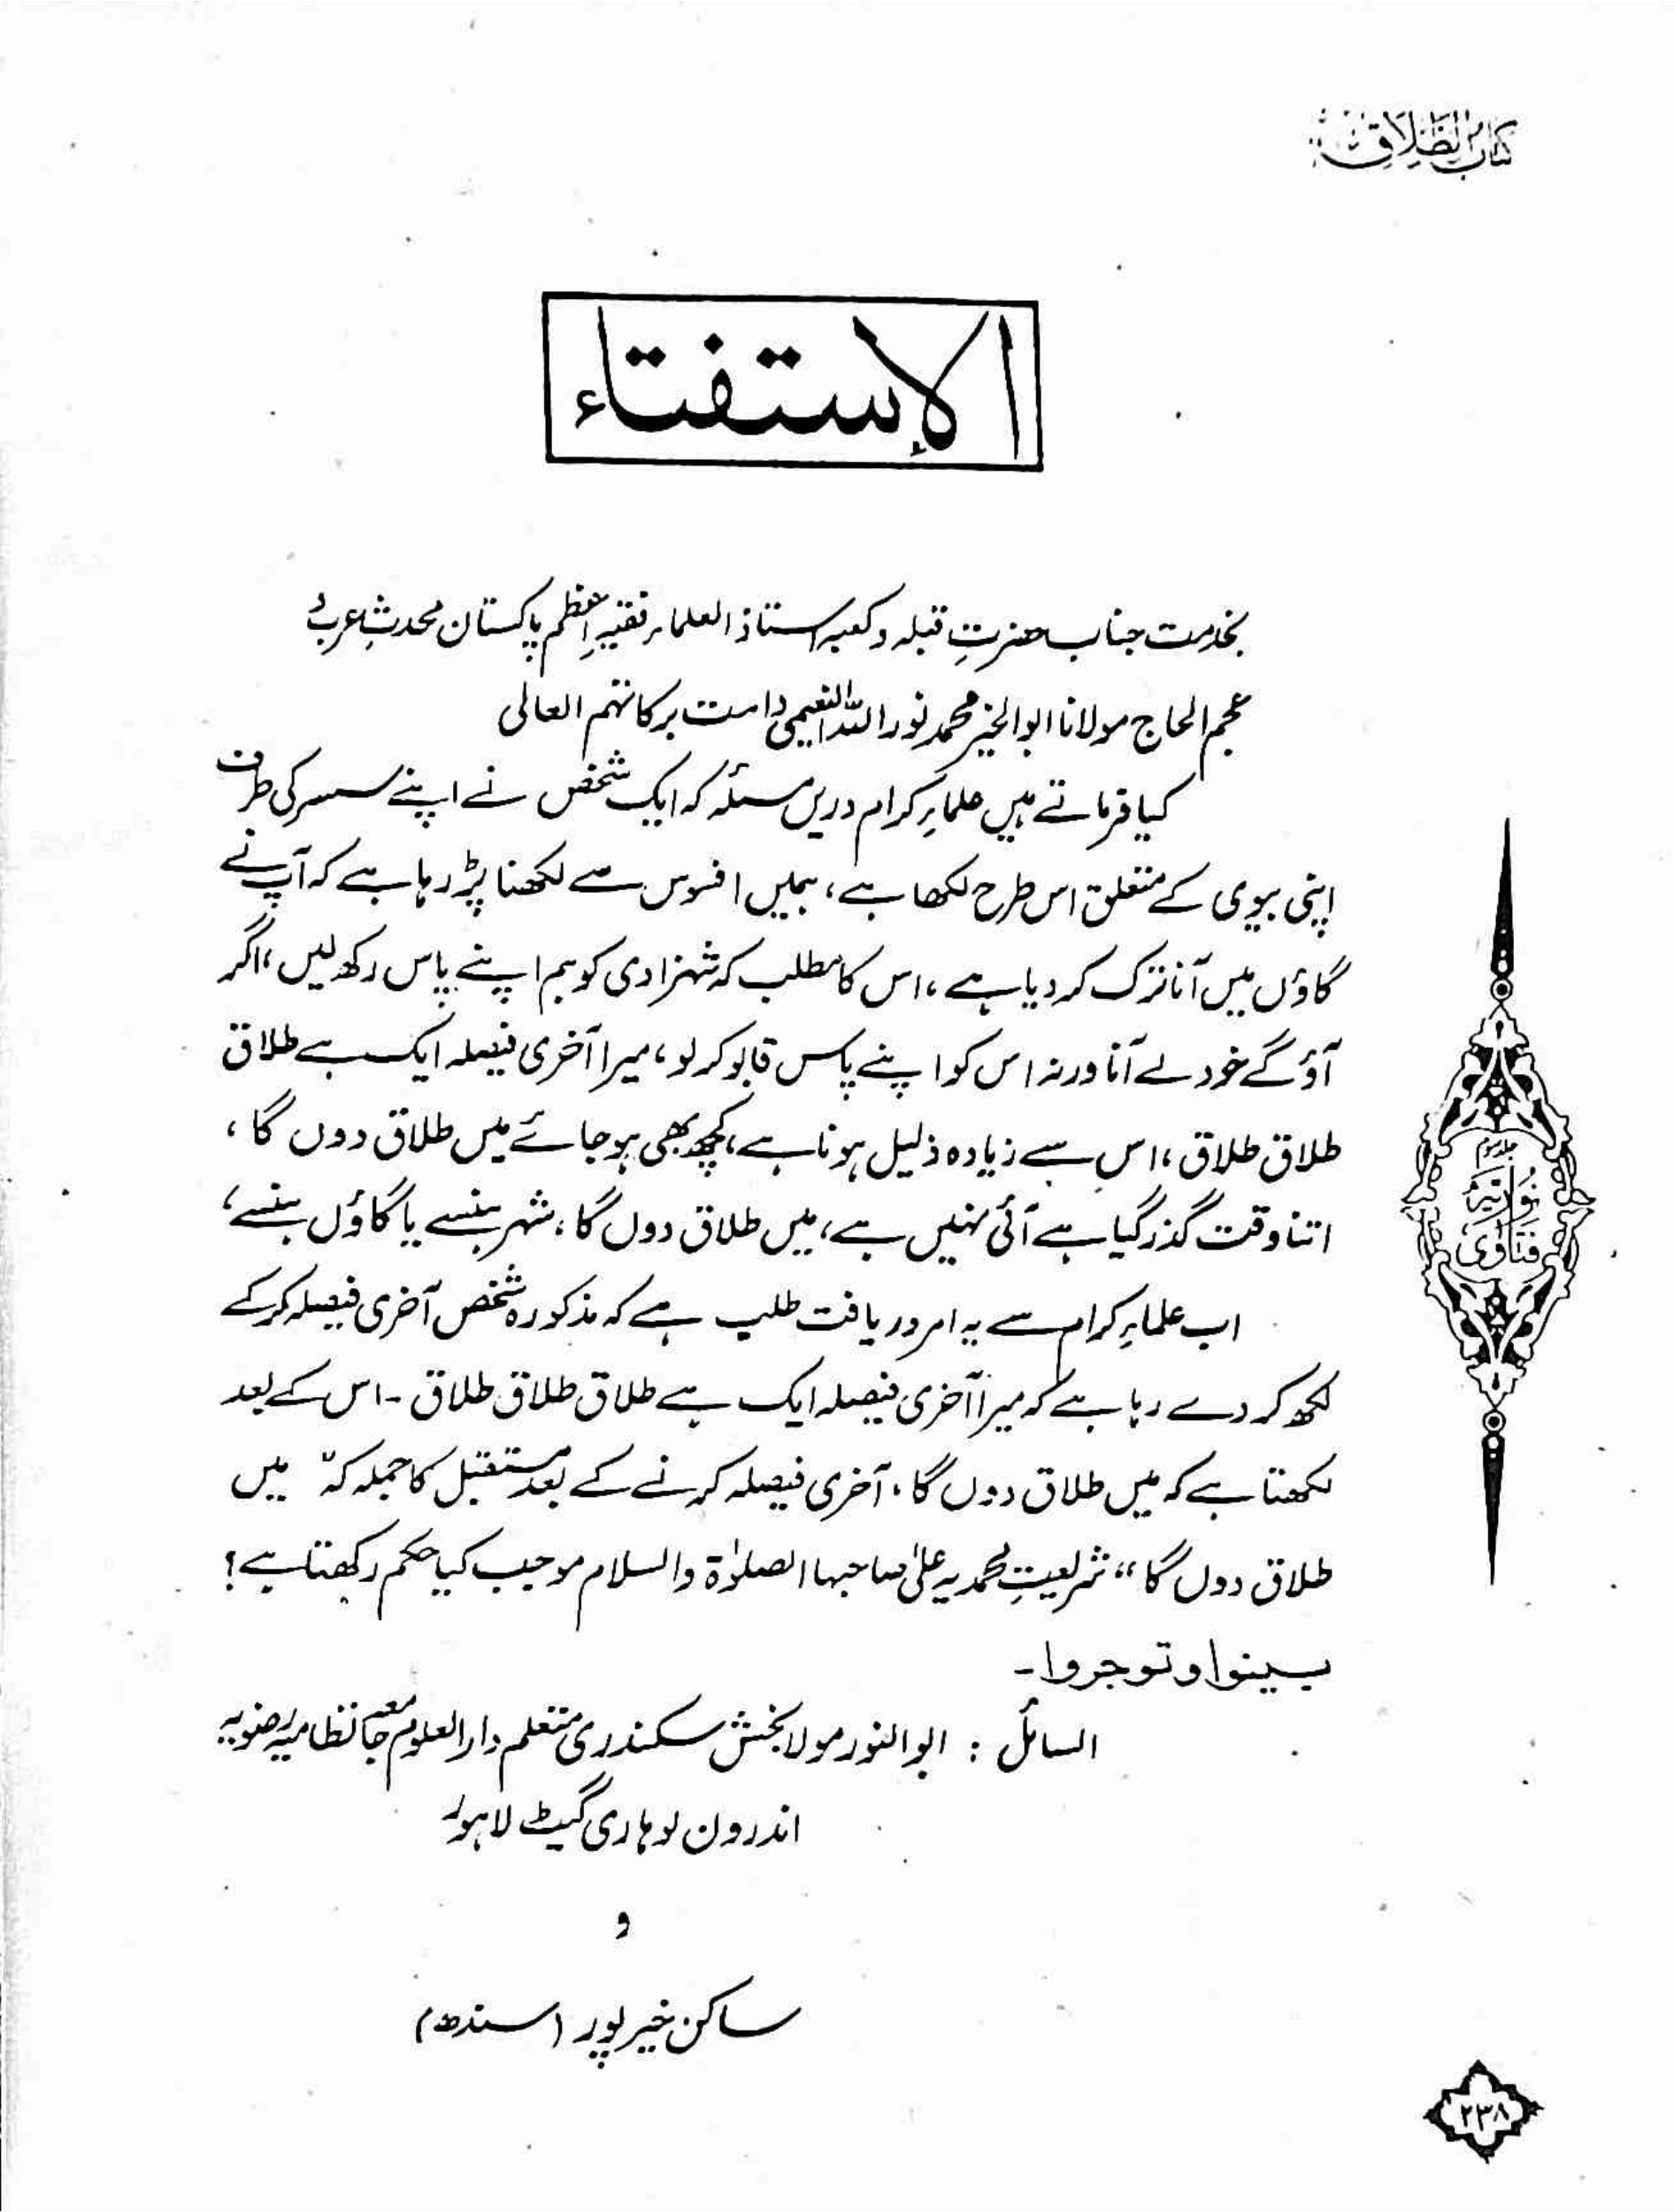 کتاب الطلاق
الاستفتاء
بخدمت جناب حضرتِ قبلہ و کعبہ استاذ العلماء فقیہِ اعظم پاکستان محدثِ عرب و
عجم الحاج مولانا ابوالخیر محمد نور اللہ النعیمی دامت برکاتہم العالی
کیا فرماتے ہیں علماءِ کرام دریں مسئلہ کہ ایک شخص نے اپنے سسر کی طرف
اپنی بیوی کے متعلق اس طرح لکھا ہے، ہمیں افسوس سے لکھنا پڑ رہا ہے کہ آپ نے
گاؤں میں آنا ترک کر دیا ہے، اس کا مطلب کہ شہزادی کو ہم اپنے پاس رکھ لیں، اگر
آؤ گے خود لے آنا ورنہ اس کو اپنے پاس قابو کر لو، میرا آخری فیصلہ ایک ہے طلاق
طلاق طلاق، اس سے زیادہ ذلیل ہونا ہے، کچھ بھی ہو جائے میں طلاق دوں گا،
اتنا وقت گذر گیا ہے آئی نہیں ہے، میں طلاق دوں گا، شہر ہنسے یا گاؤں ہنسے،
اب علماءِ کرام سے یہ امر دریافت طلب ہے کہ مذکورہ شخص آخری فیصلہ کر کے
لکھ کر دے رہا ہے کہ میرا آخری فیصلہ ایک ہے طلاق طلاق طلاق ۔ اس کے بعد
لکھتا ہے کہ میں طلاق دوں گا، آخری فیصلہ کرنے کے بعد مستقبل کا جملہ کہ " میں
طلاق دوں گا" شریعتِ محمدیہ علیٰ صاحبہا الصلوٰۃ والسلام موجب کیا حکم رکھتا ہے؟
بینوا و توجروا۔
السائل : ابوالنور مولا بخش سکندری متعلم دارالعلوم جامعہ نظامیہ رضویہ
اندرون لوہاری گیٹ لاہور
و
ساکن خیرپور (سندھ)
جلد سوم
نوریہ
فتاویٰ
۲۳۸